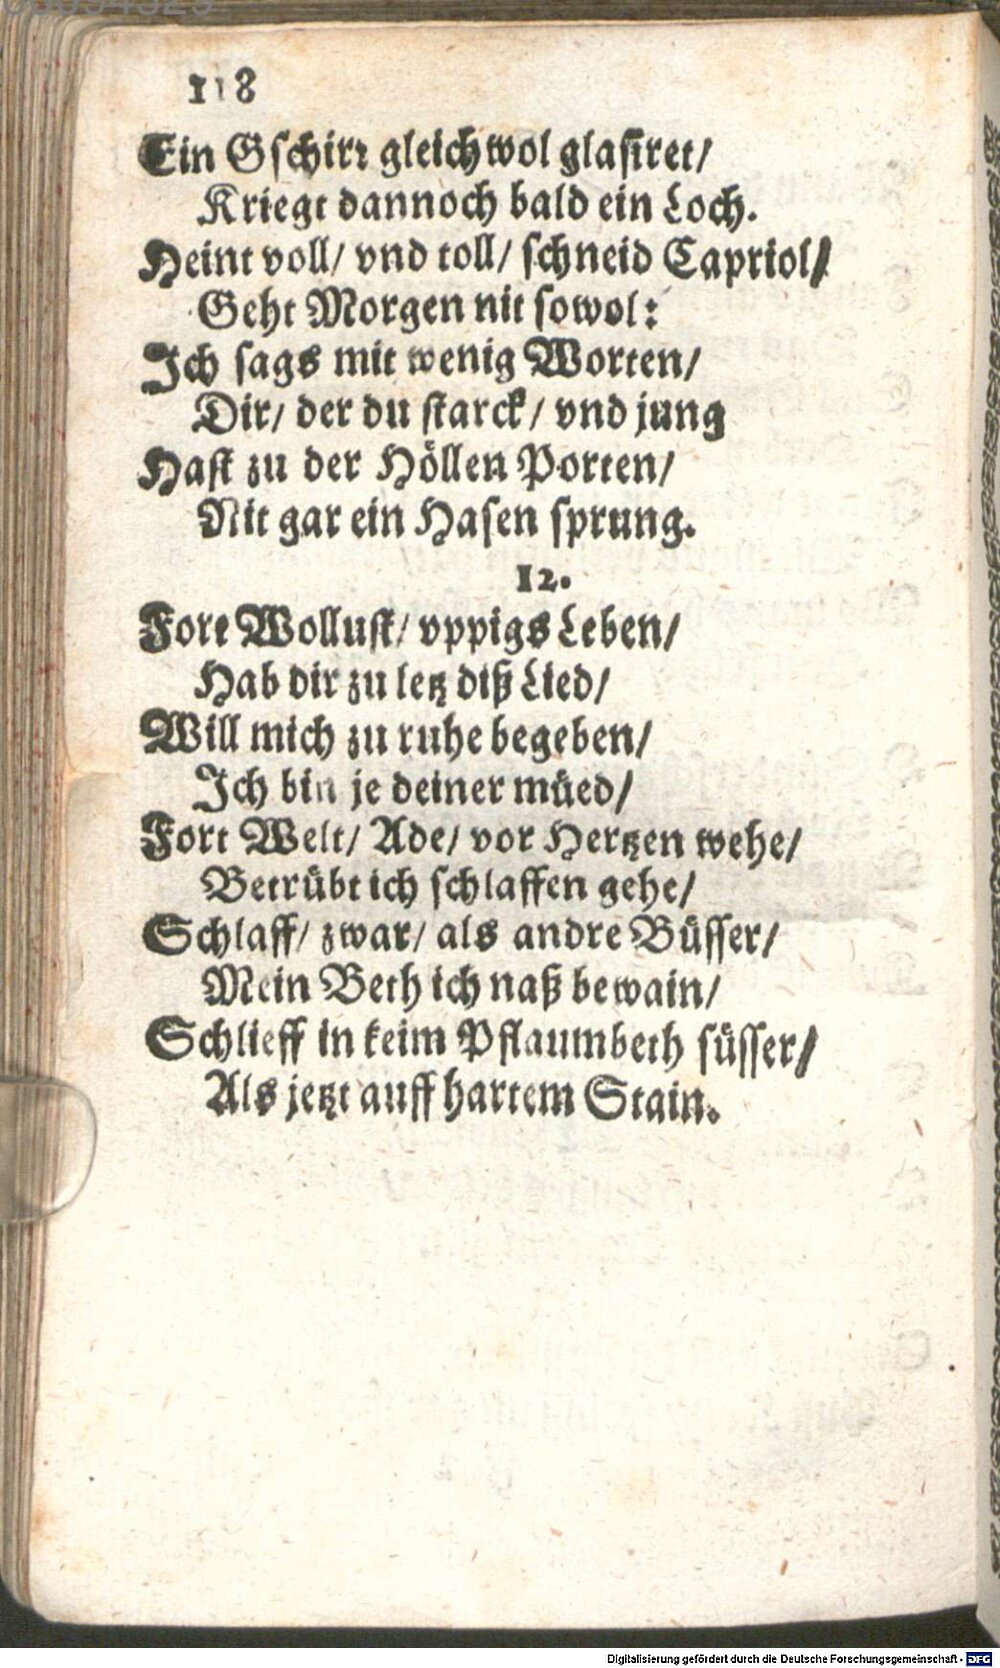 118
Ein Gschirr gleichwol glasiret/
Kriegt dannoch bald ein Loch.
Heint voll/ vnd toll/ schneid Capriol/
Geht Morgen nit sowol:
Ich sags mit wenig Worten/
Dir/ der du starck/ vnd jung
Hast zu der Höllen Porten/
Nit gar ein Hasen sprung.
12.
Fort Wollust/ vppigs Leben/
Hab dir zu letz diß Lied/
Will mich zu ruhe begeben/
Ich bin je deiner müed/
Fort Welt/ Ade/ vor Hertzen wehe/
Betrübt ich schlaffen gehe/
Schlaff/ zwar/ als andre Büsser/
Mein Beth ich naß bewain/
Schlieff in keim Pflaumbeth süsser/
Als jetzt auff hartem Stain.
Digitalisierung gefördert durch die Deutsche Forschungsgemeinschaft - DFG